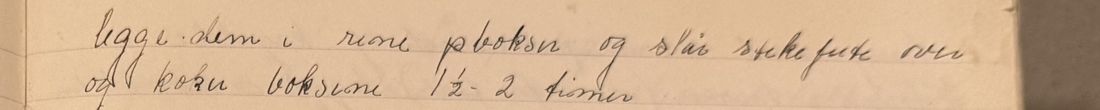 legge dem i rene pbokser og slår stekefete over
og koker boksene 1½ - 2 timer